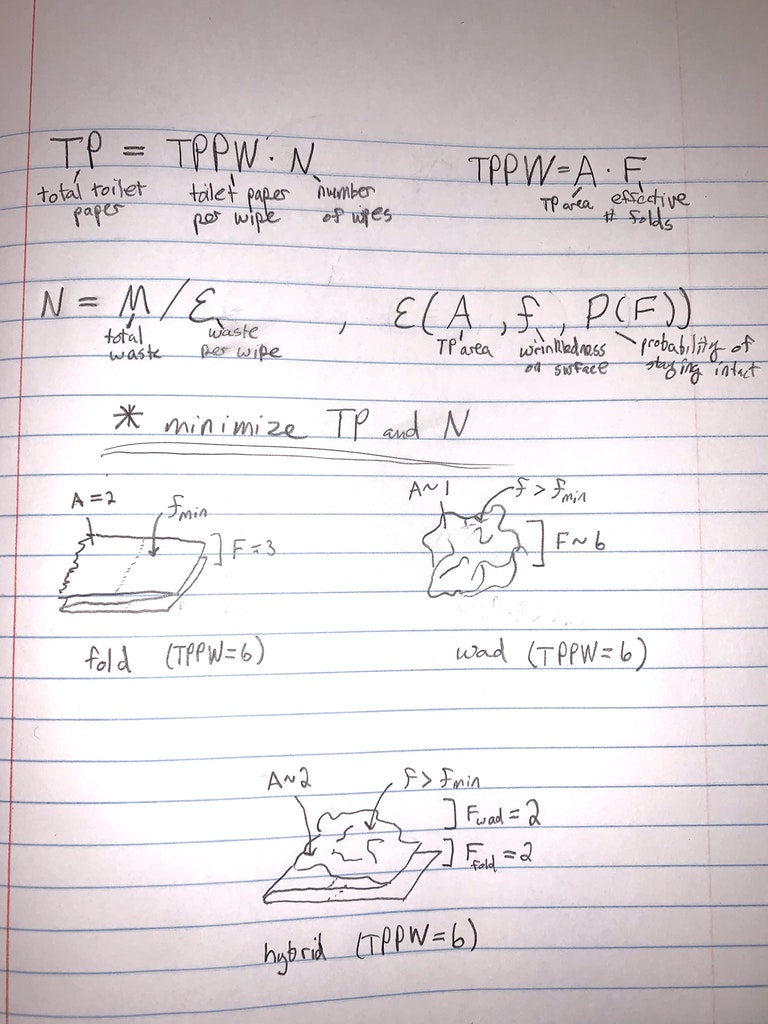 TP = TPPW · N
total toilet paper
toilet paper per wipe
number of wipes
TPPW = A · F
TP area
effective # folds
N = M / ε
total waste
waste per wipe
, ε(A, f, P(F))
TP area
wrinkledness on surface
probability of staying intact
* minimize TP and N
A = 2
fmin
F = 3
fold (TPPW = 6)
A ~ 1
f > fmin
F ~ 6
wad (TPPW = 6)
A ~ 2
f > fmin
Fwad = 2
Ffold = 2
hybrid (TPPW = 6)